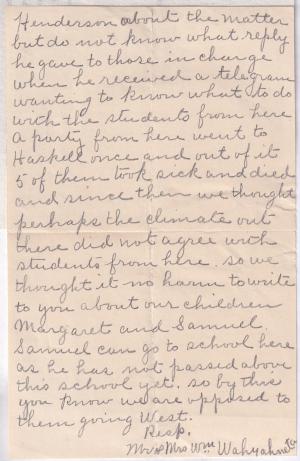 Henderson about the matter
but do not know what reply
he gave to those in charge
when he received a telegram
wanting to know what to do
with the students from here
A party from here went to
Haskell once and out of it
5 of them took sick and died
and since then we thought
perhaps the climate out
there did not agree with
students from here. so we
thought it no harm to write
to you about our children
Margaret and Samuel.
Samuel can go to school here
as he has not passed above
this school yet. so by this
you know we are opposed to
them going West.
Resp.
Mr & Mrs Wm